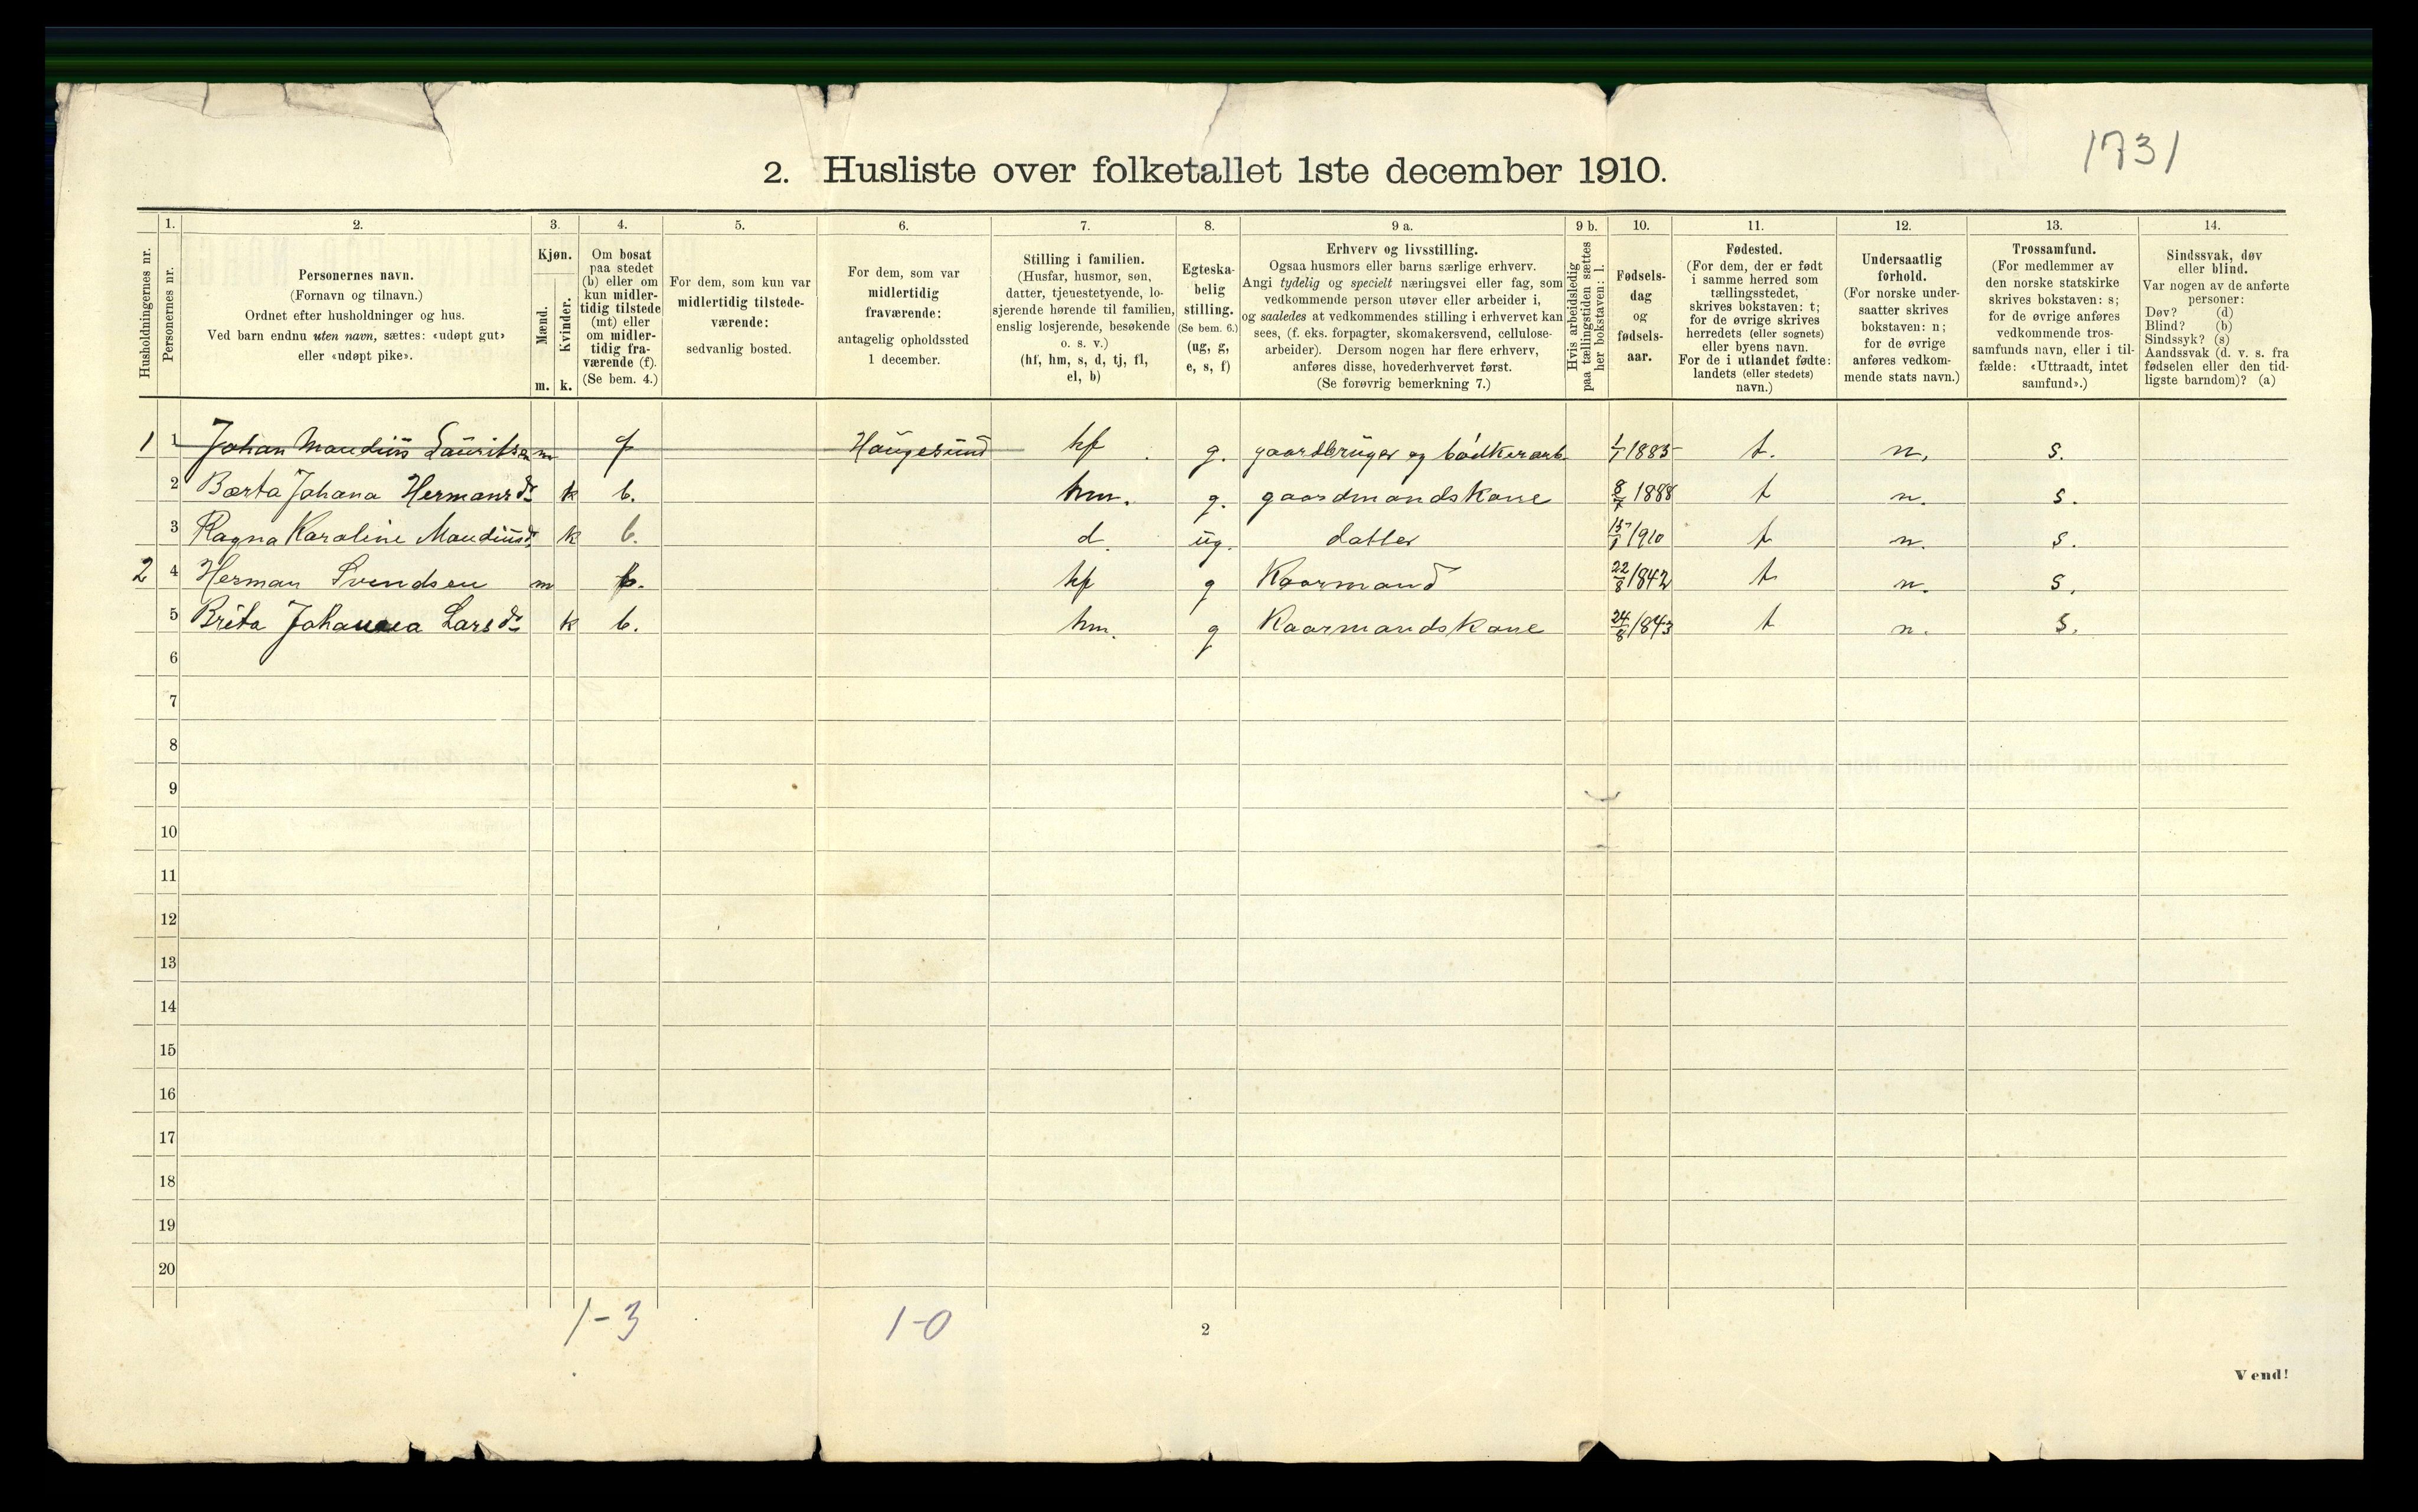 1731
2. Husliste over folketallet 1ste december 1910.
Husholdningernes nr.
1.
Personernes nr.
2.
Personernes navn.
(Fornavn og tilnavn.)
Ordnet efter husholdninger og hus.
Ved barn endnu uten navn, sættes: «udøpt gut»
eller «udøpt pike».
3.
Kjøn.
Mænd.
Kvinder.
m. k.
4.
Om bosat
paa stedet
(b) eller om
kun midler-
tidig tilstede
(mt) eller
om midler-
tidig fra-
værende (f).
(Se bem. 4.)
5.
For dem, som kun var
midlertidig tilstede-
værende:
sedvanlig bosted.
6.
For dem, som var
midlertidig
fraværende:
antagelig opholdssted
1 december.
7.
Stilling i familien.
(Husfar, husmor, søn,
datter, tjenestetyende, lo-
sjerende hørende til familien,
enslig losjerende, besøkende
o. s. v.)
(hf, hm, s, d, tj, fl,
el, b)
8.
Egteska-
belig
stilling.
(Se bem. 6.)
(ug, g,
e, s, f)
9 a.
Erhverv og livsstilling.
Ogsaa husmors eller barns særlige erhverv.
Angi tydelig og specielt næringsvei eller fag, som
vedkommende person utøver eller arbeider i,
og saaledes at vedkommendes stilling i erhvervet kan
sees, (f. eks. forpagter, skomakersvend, cellulose-
arbeider). Dersom nogen har flere erhverv,
anføres disse, hovederhvervet først.
(Se forøvrig bemerkning 7.)
9 b.
Hvis arbeidsledig
paa tællingstiden sættes
her bokstaven: l.
10.
Fødsels-
dag
og
fødsels-
aar.
11.
Fødested.
(For dem, der er født
i samme herred som
tællingsstedet,
skrives bokstaven: t;
for de øvrige skrives
herredets (eller sognets)
eller byens navn.
For de i utlandet fødte:
landets (eller stedets)
navn.)
12.
Undersaatlig
forhold.
(For norske under-
saatter skrives
bokstaven: n;
for de øvrige
anføres vedkom-
mende stats navn.)
13.
Trossamfund.
(For medlemmer av
den norske statskirke
skrives bokstaven: s;
for de øvrige anføres
vedkommende tros-
samfunds navn, eller i til-
fælde: «Uttraadt, intet
samfund».)
14.
Sindssvak, døv
eller blind.
Var nogen av de anførte
personer:
Døv? (d)
Blind? (b)
Sindssyk? (s)
Aandssvak (d. v. s. fra
fødselen eller den tid-
ligste barndom)? (a)
1 1 Johan Maudius Lauritsen m f Haugesund hf g. gaardbruger og bødkerarb. 1/1 1883 t. n. s.
2 Bærta Johana Hermansdr k b. hm. g. gaardmandskone 8/7 1888 t n. s.
3 Ragna Karoline Maudiusdr. k b. d. ug. datter 15/1 1910 t n. s.
2 4 Herman Svendsen m b. hf g Kaarmand 22/8 1842 t n. s.
5 Brita Johanna Larsdr k b. hm. g Kaarmandskone 24/8 1843 t n. s.
6
7
8
9
10
11
12
13
14
15
16
17
18
19
20
1-3 1-0
2
Vend!